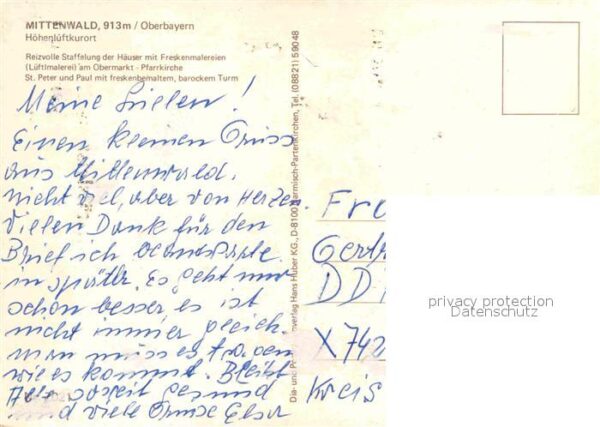 MITTENWALD, 913 m / Oberbayern
Höhenlüftkurort
Reizvolle Staffelung der Häuser mit Freskenmalereien
(Lüftlmalerei) am Obermarkt - Pfarrkirche
St. Peter und Paul mit freskenbemaltem, barockem Turm
Meine Lieben!
Einen kleinen Gruss
aus Mittenwald.
nicht viel, aber von Herzen
Vielen Dank für den
Brief ich beantworte
in später. Es geht mir
schon besser es ist
nicht immer gleich.
man muss es tragen
wie es kommt. Bleibt
Alle soweit gesund
und viele Grüsse Elsa
Hans Huber KG., D-8100 Garmisch-Partenkirchen, Tel. (08821) 59048
Fra
Gertr
DD
X742
Kreis
privacy protection
Datenschutz